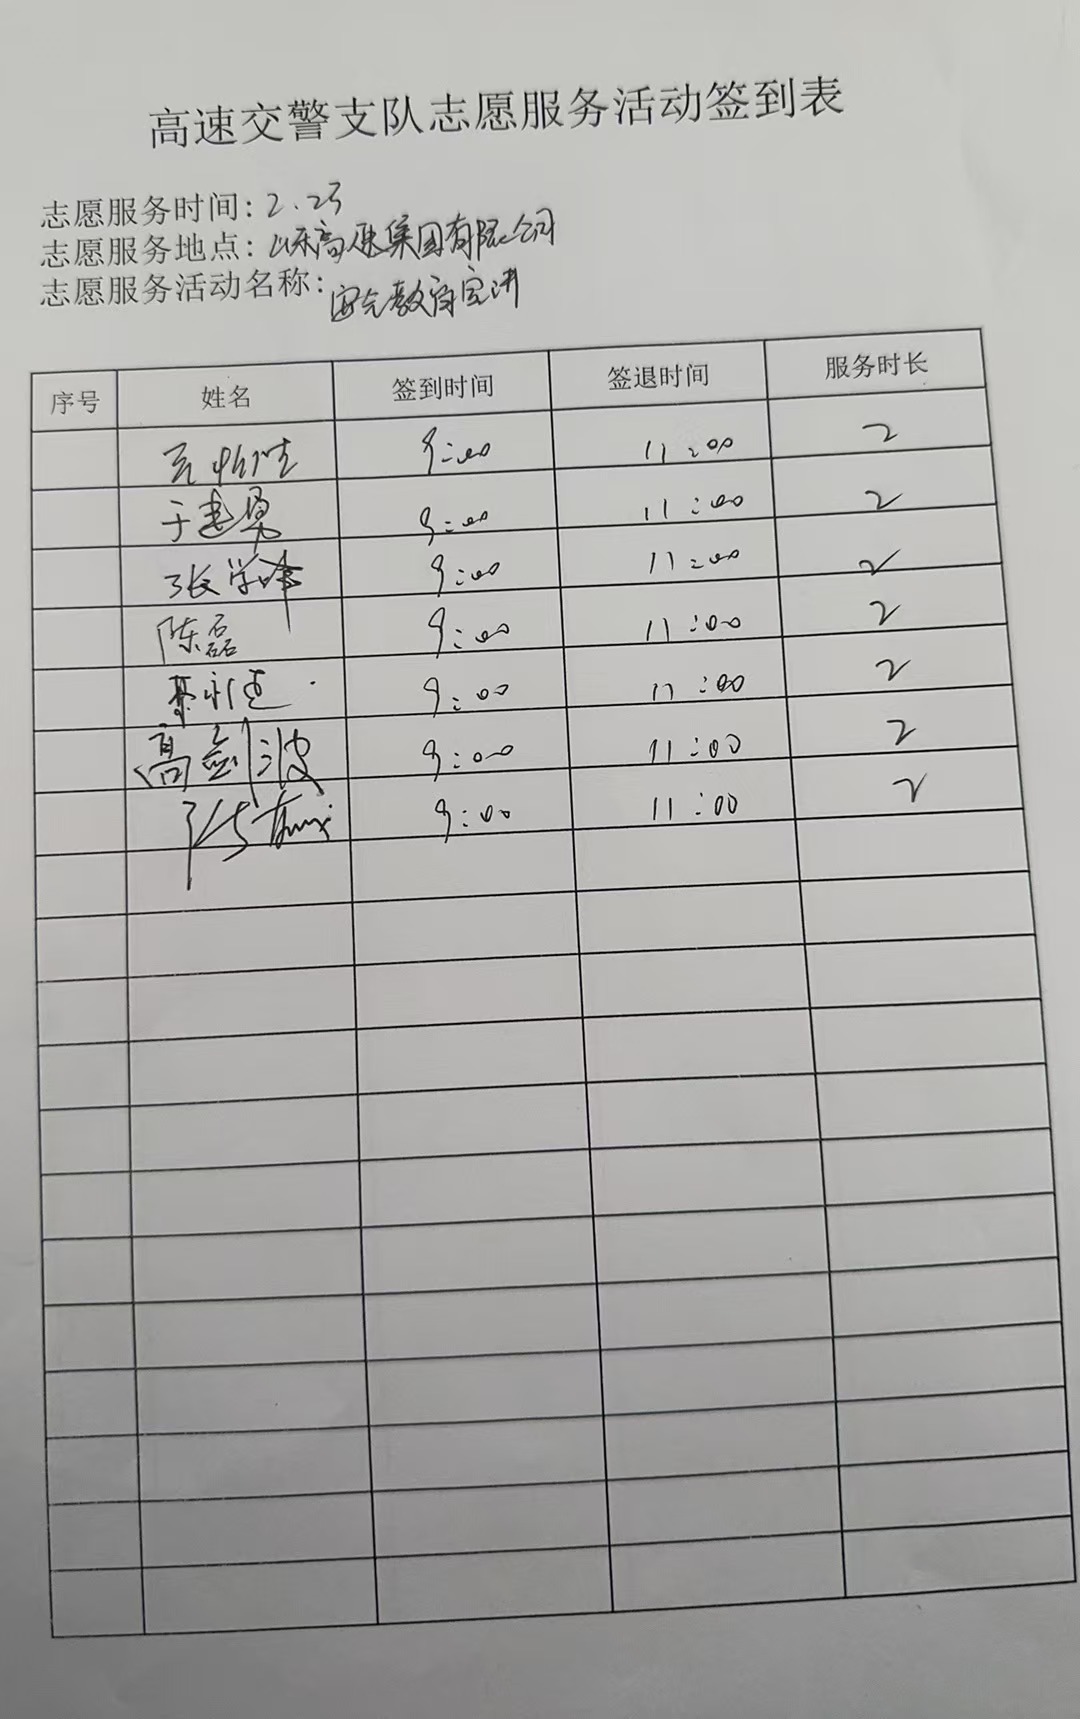 高速交警支队志愿服务活动签到表
志愿服务时间：2.25
志愿服务地点：山东高速集团有限公司
志愿服务活动名称：安全教育宣讲
序号 姓名 签到时间 签退时间 服务时长
9:00 11:00 2
于建勇 9:00 11:00 2
张学峰 9:00 11:00 2
陈磊 9:00 11:00 2
9:00 11:00 2
高剑波 9:00 11:00 2
9:00 11:00 2